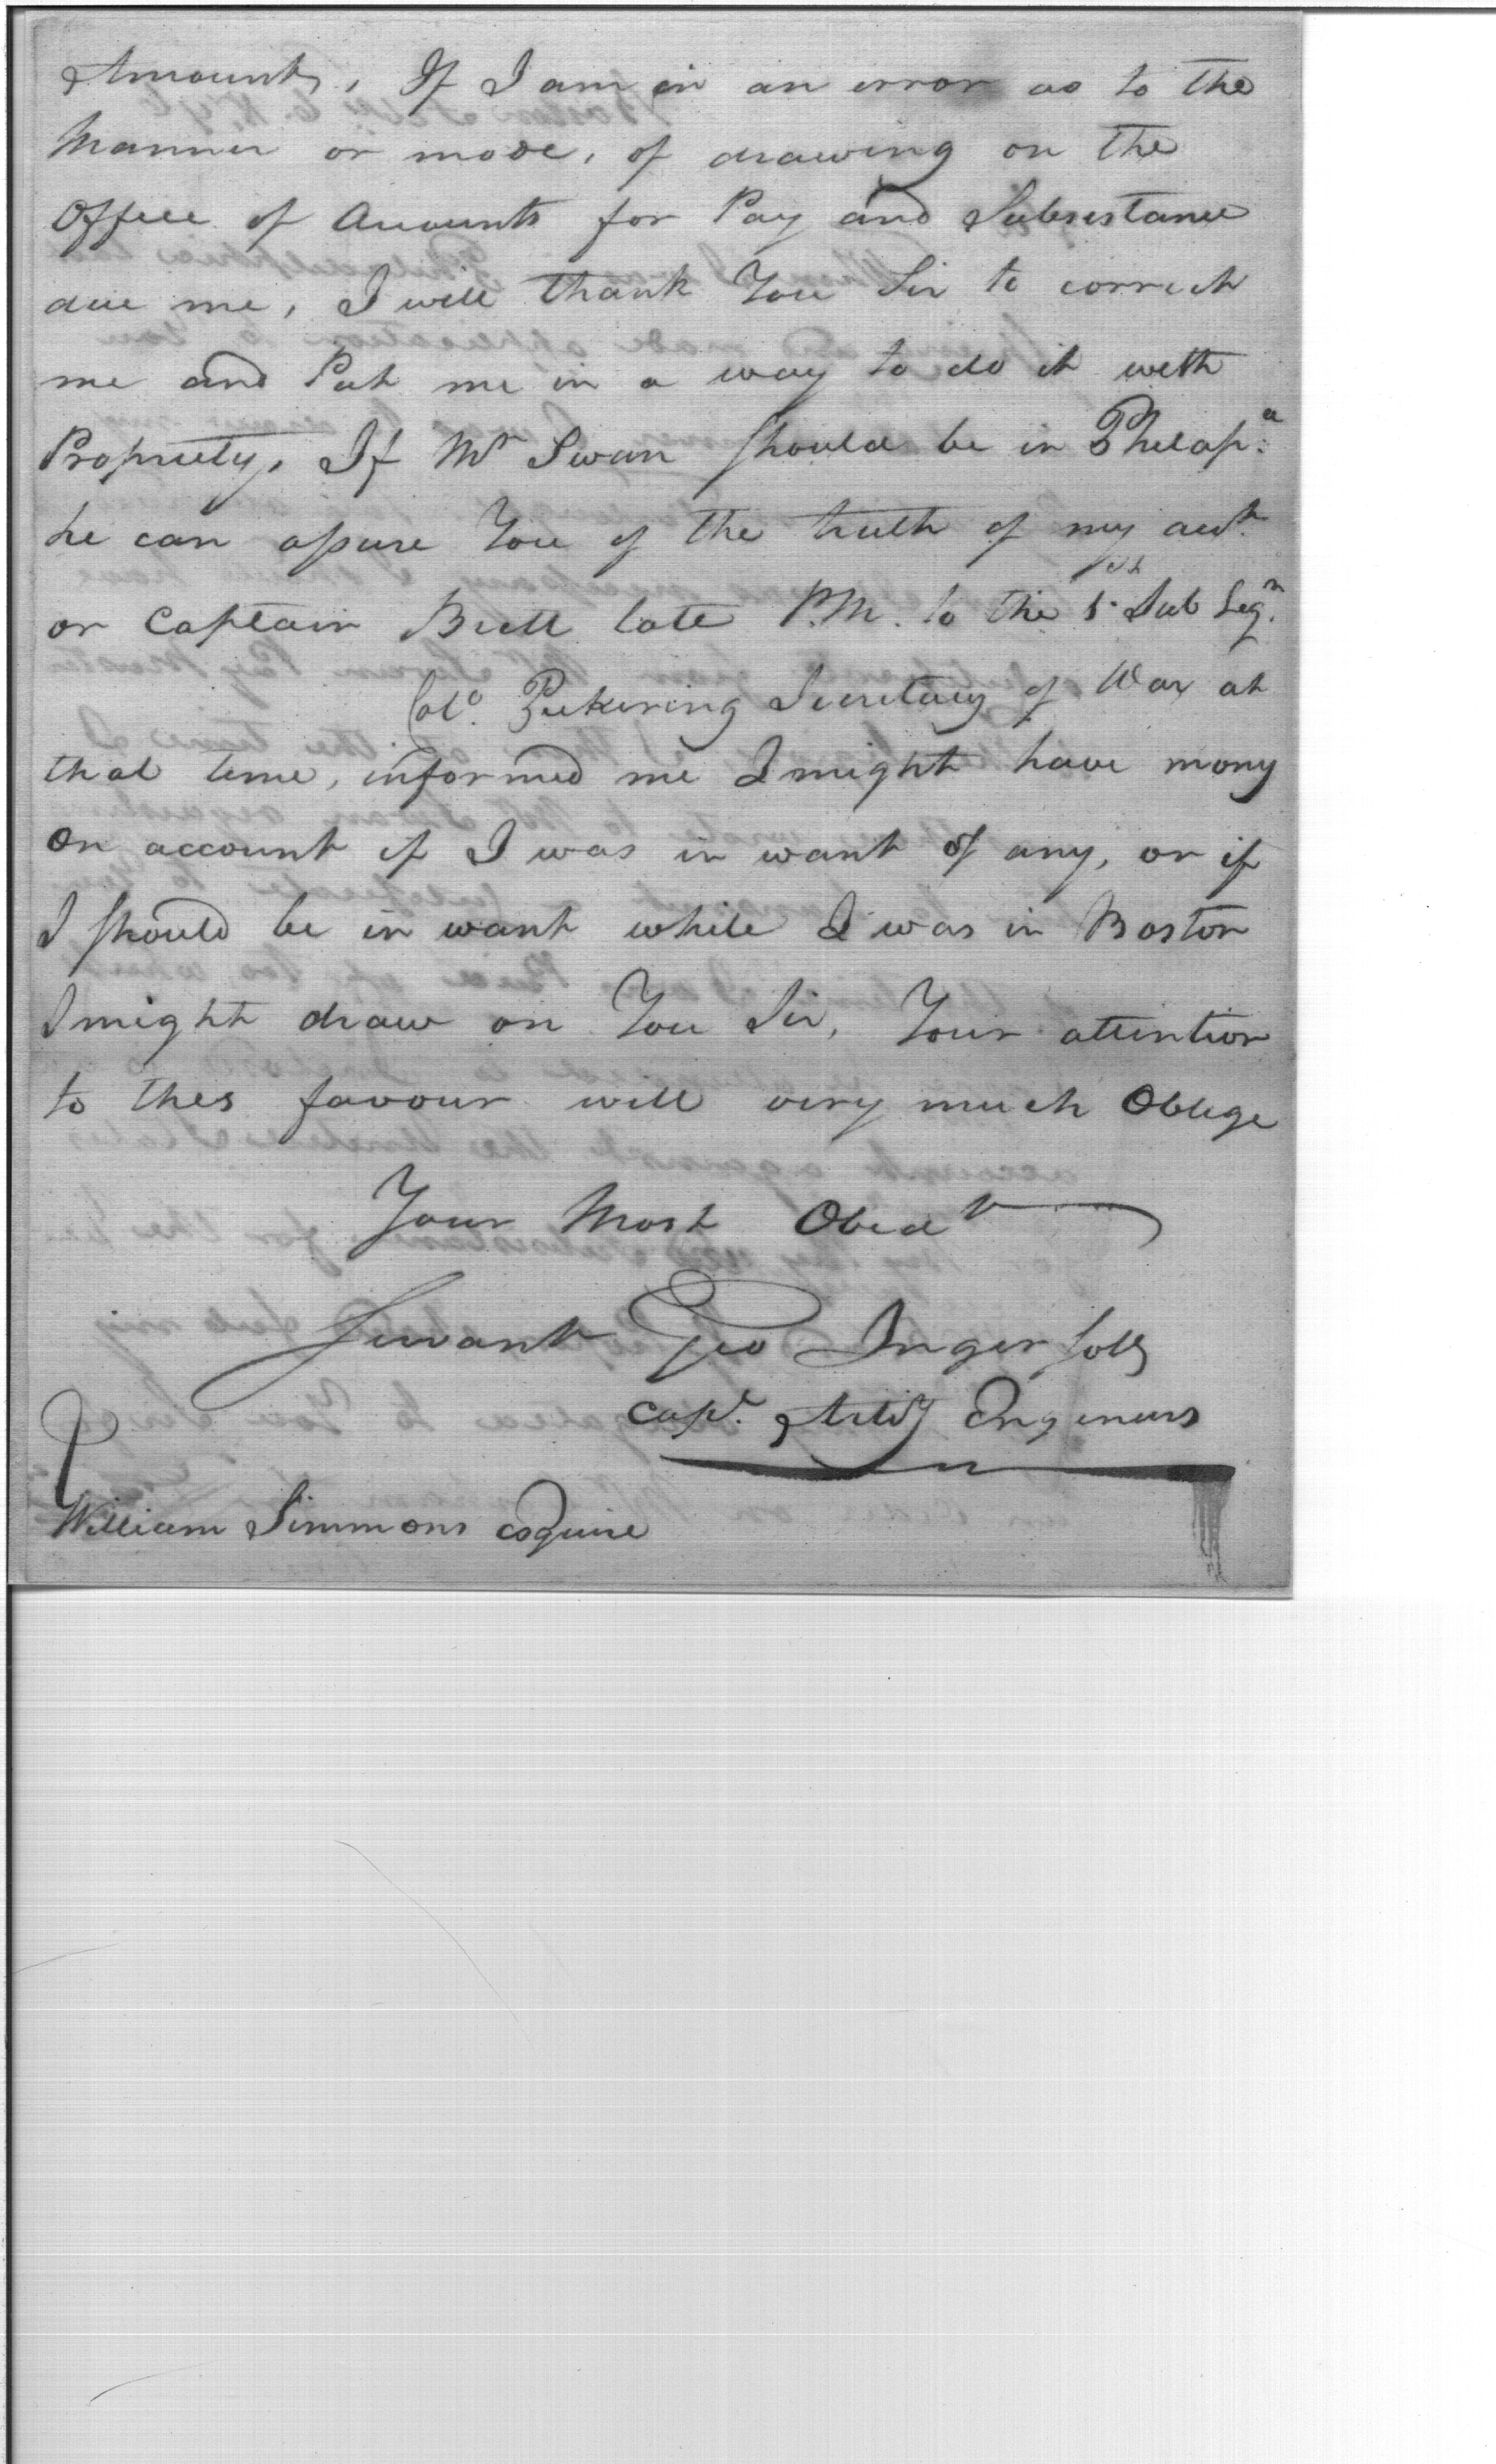 Amount, If I am in an error as to the
Manner or mode, of drawing on the
Office of Accounts for Pay and Subsistance
due me, I will thank You Sir to correct
me and Put me in a way to do it with
Propriety, If Mr Swan should be in Philap:a
he can assure You of the truth of my acct.
or Captain Britt late P.M. to the 1st Sub Legn.
Colo. Pickering Secretary of War at
that time, informed me I might have mony
on account if I was in want of any, or if
I should be in want while I was in Boston
I might draw on You Sir, Your attention
to this favour will very much Oblige
Your Most Obedt
Servant Geo Ingersoll
Capt. Artily Engineers
William Simmons esquire